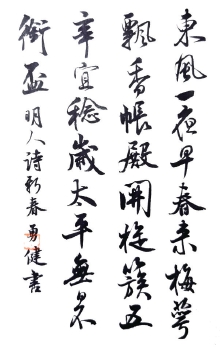 東風一夜早春來梅萼
飄香帳殿開旋簇五
辛宜稔歲太平無日不
銜盃 明人詩新春 勇健書